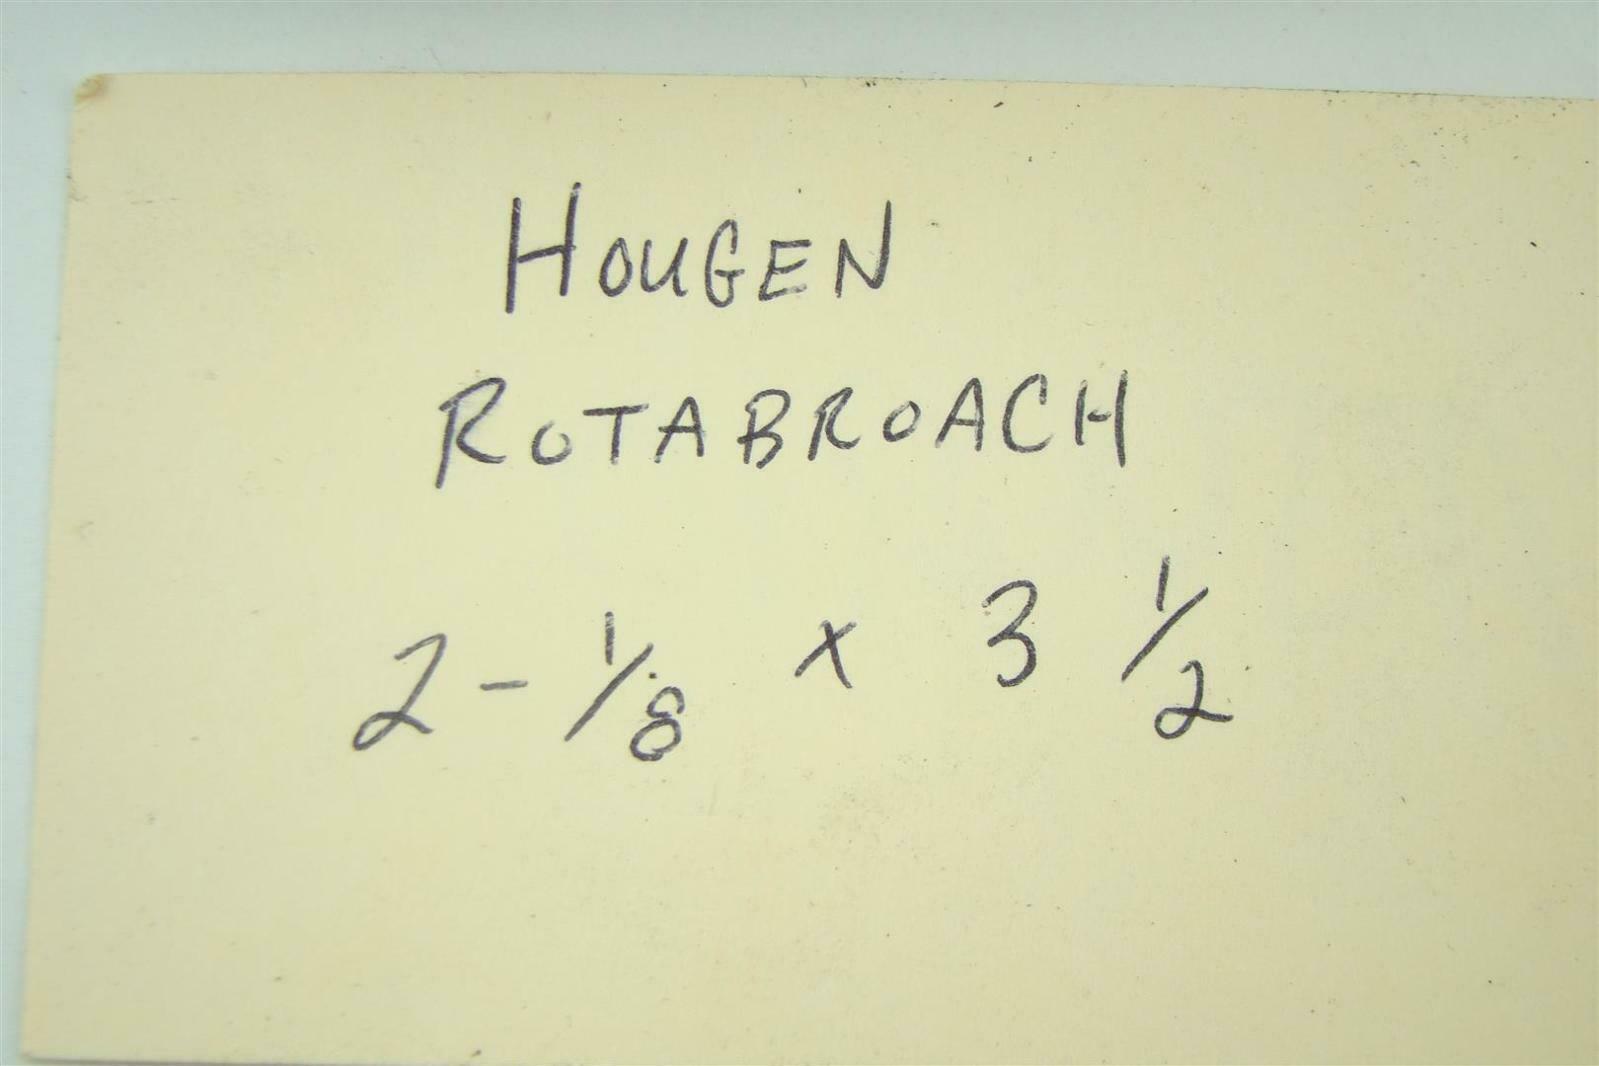 HOUGEN
ROTABROACH
2-1/8 x 3 1/2